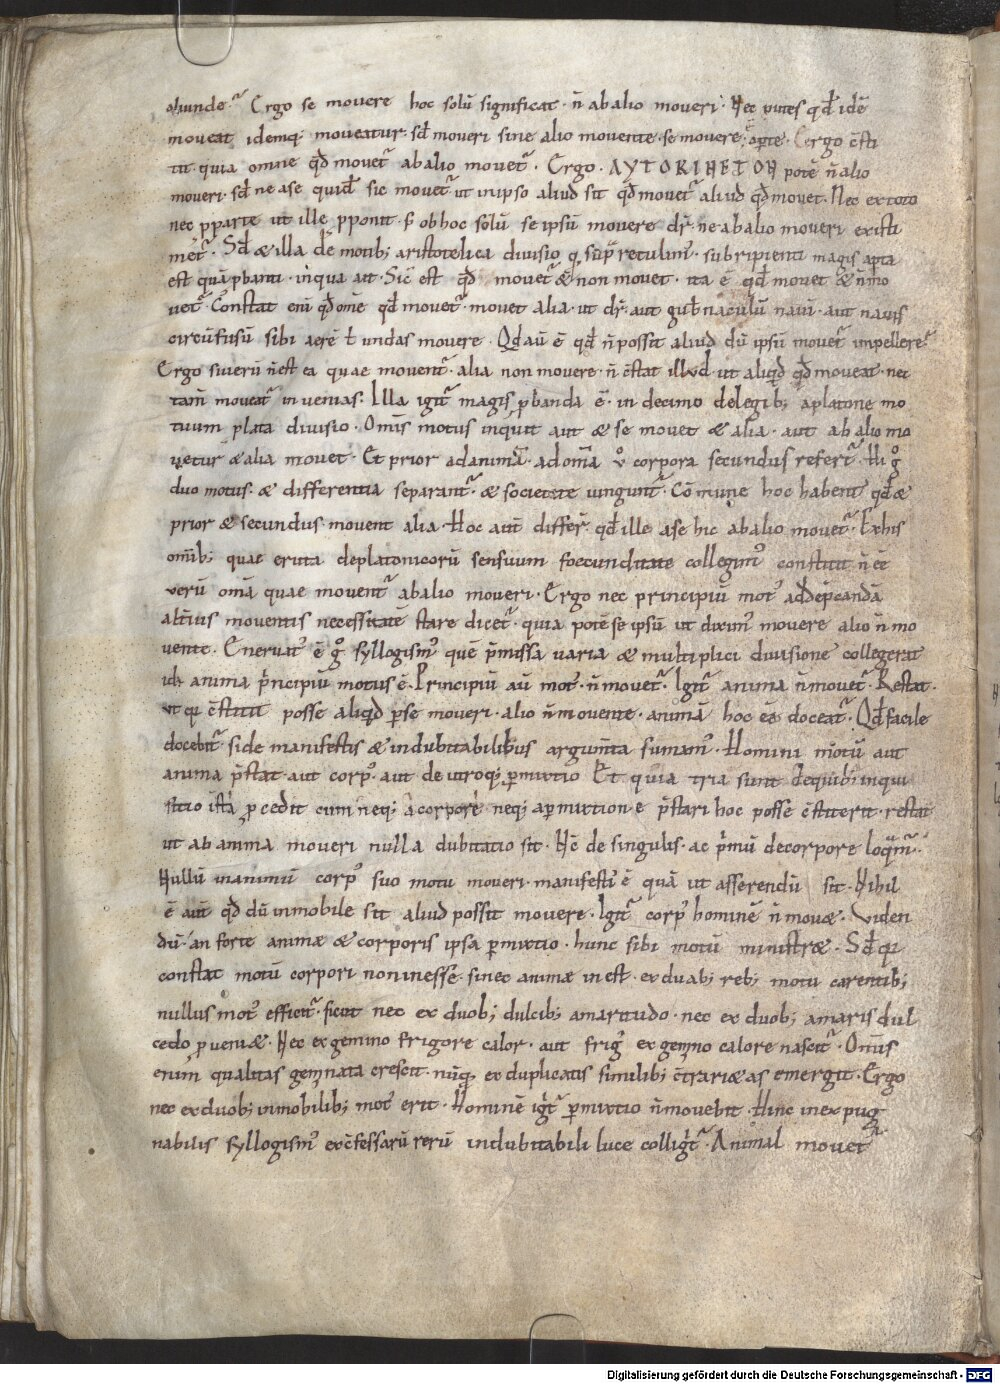 aliunde. Ergo se movere hoc solū significat. n̄ ab alio moveri. Nec putes qd̄ idē
moveat idemq; moveatur. sꝫ moveri sine alio movente. se movere; aꝑte. Ergo c̄sti
tit. quia omne qd̄ movet᷑ ab alio movet᷑. Ergo. ΑΥΤΟΚΙΝΕΤΟΝ potē n̄ alio
moveri. sꝫ ne a se quidē sic movet᷑ ut in ipso aliud sit qd̄ movet᷑ aliud qd̄ movet. Nec ex toto
nec p parte ut ille pponit. s; ob hoc solū se ipsū movere dr̄. ne ab alio moveri existi
mēt᷑. Sꝫ & illa de motib; aristotelica divisio q̄ sup̄ retulim᷒. subripienti magis apta
est quā pbanti. inqua ait. Sic̄ est qd̄ movet᷑ & non movet. ita ē qd̄ movet & n̄ mo
vet᷑. Constat eni qd̄ om̄e qd̄ movet᷑. movet alia. ut dr̄. aut gub̄naculū navi. aut navis
circūfusū sibi aerē ł undas movere. Qd̄ aū ē qd̄ n̄ possit aliud dū ipsū movet᷑ impellere.
Ergo si verū n̄ est ea quae movent᷑. alia non movere. n̄ c̄stat illud ut aliqd̄ qd̄ moveat. nec
tam̄ moveat᷑ invenias. Illa igit᷑ magis p̱banda ē. in decimo de legib; a platone mo
tuum p̱lata divisio. Om̄is motus inquit aut & se movet & alia. aut ab alio mo
vetur & alia movet. Et prior ad animā. ad om̄ia ů corpora secundus refert᷑. Hi g̊
duo motus. & differentia separant᷑. & societate iungunt᷑. Cōmune hoc habent qd̄ &
prior & secundus movent alia. Hoc aūt differt̄ qd̄ ille a se hic ab alio movet᷑. Ex his
om̄ib; quae eruta de platonicorū sensuum foecunditate collegim᷒ constitit n̄ eē
verū om̄ia quae movent᷑ ab alio moveri. Ergo nec principiū mot᷒ ad dep̄candā
alt̄ius moventis necessitatē stare dicet᷑. quia potē se ipsū ut dixim᷒ movere alio n̄ mo
vente. Enervat᷒ ē g̊ syllogism᷒ quē p̄missa varia & multiplici divisione collegerat
id; anima p̄ncipiū motus ē. Principiū aū mot᷒. n̄ movet᷑. Igit᷑ anima n̄ movet᷑. Restat.
ut qa c̄stitit posse aliqd̄ p̱ se moveri. alio n̄ movente. animā hoc eē doceat᷑. Qd̄ facile
docebit᷑. si de manifestis & indubitabilibus argum̄ta sumam᷒. Homini motū aut
anima p̄stat. aut corp᷒. aut de utroq; p̱mixtio. Et quia tria sunt de quib; inqui
sitio ista p̱cedit cum neq; a corpore neq; a p̱mixtione p̄stari hoc posse c̄stiterit. restat
ut ab anima moveri nulla dubitatio sit. Nc̄ de singulis. ac p̄mū de corpore loqm᷑.
Nullū inanimū corp᷒ suo motu moveri. manifesti᷒ ē quā ut asserendū sit. Nihil
ē aūt qd̄ dū inmobile sit aliud possit movere. Igit᷑ corp᷒ hominē n̄ mov&. Viden
dū. an forte animae & corporis ipsa p̱mixtio. hunc sibi motū ministr&. Sꝫ qa
constat motū corpori non inesse si nec animae inest. ex duab; reb; motu carentib;
nullus mot᷒ efficit᷑. sicut nec ex duob; dulcib; amaritudo. nec ex duob; amaris dul
cedo p̱veni&. Nec ex gemino frigore calor. aut frig᷒ ex gem̄no calore nascit᷑. Om̄is
enim qualitas gem̄nata crescit. nūq̄ ex duplicatis similib; c̄trari&as emergit. Ergo
nec ex duob; inmobilib; mot᷒ erit. Hominē igit᷑ p̱mixtio n̄ movebit. Hinc inexpug
nabilis syllogism᷒ ex c̄fessarū rerū indubitabili luce colligit᷑. Animal movet᷑
Digitalisierung gefördert durch die Deutsche Forschungsgemeinschaft - DFG